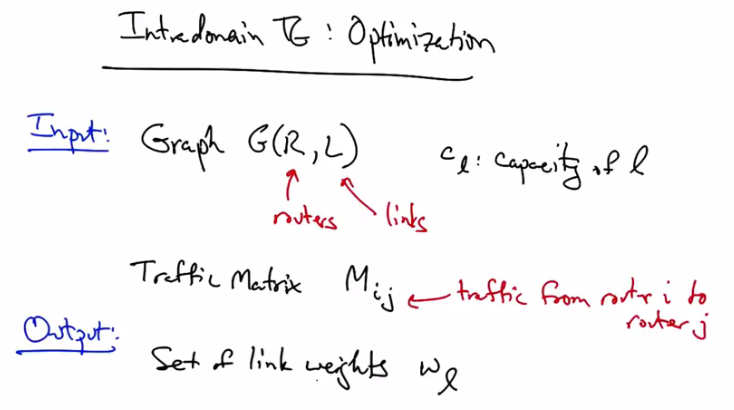 Intradomain TE : Optimization
Input: Graph G(R, L) c_l : capacity of l
routers links
Traffic Matrix M_ij ← traffic from router i to router j
Output:
Set of link weights w_l